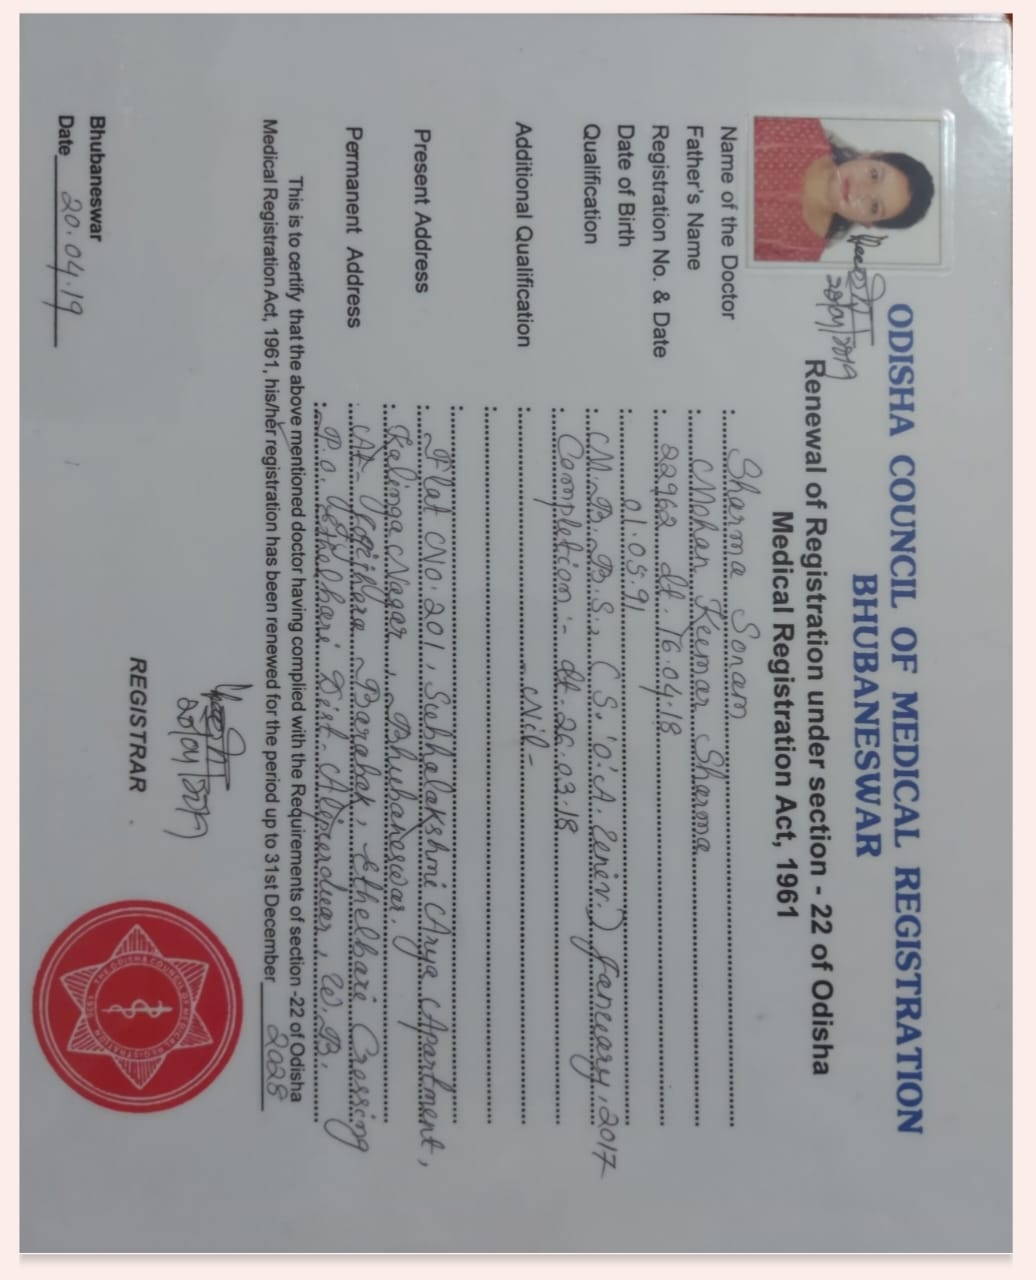 ODISHA COUNCIL OF MEDICAL REGISTRATION
BHUBANESWAR
Renewal of Registration under section - 22 of Odisha
Medical Registration Act, 1961
20/04/2019
Name of the Doctor : Sharma Sonam
Father's Name : Mohan Kumar Sharma
Registration No. & Date : 22962 dt. 16.04.18
Date of Birth : 01.05.91
Qualification : M.B.B.S., (S.'O'.A. Univ.) January, 2017
Completion:- dt. 26.03.18
Additional Qualification : -Nil-
Present Address : Flat No. 201, Subhalakshmi Arya Apartment,
Kalinga Nagar, Bhubaneswar.
Permanent Address : At- Barabak, Ethelbari Crossing
P.O. Ethelbari Dist- Alipurduar, W.B.
This is to certify that the above mentioned doctor having complied with the Requirements of section -22 of Odisha
Medical Registration Act, 1961, his/her registration has been renewed for the period up to 31st December 2028
20/04/2019
REGISTRAR
Bhubaneswar
Date 20.04.19
THE ODISHA COUNCIL OF MEDICAL REGISTRATION